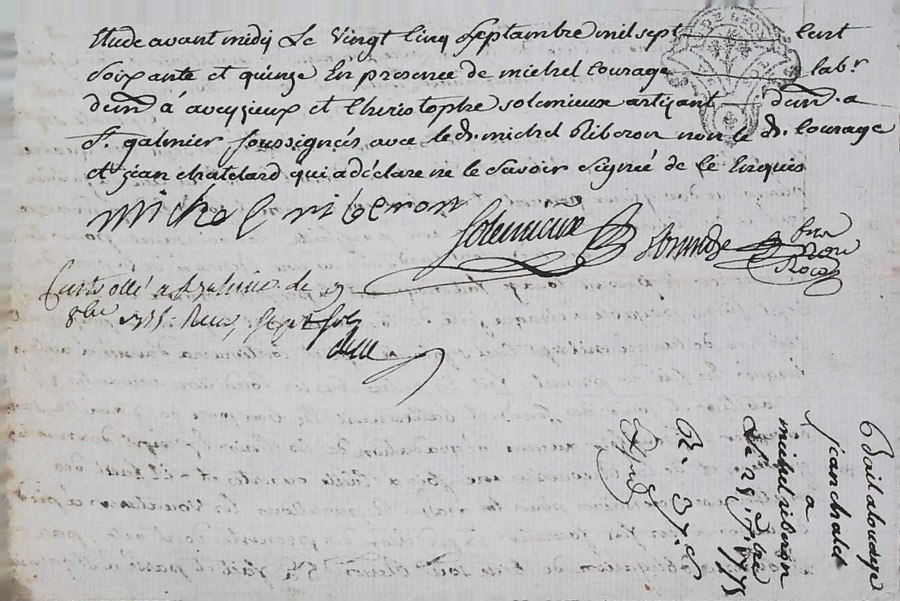 Etude avant midy Le vingt cinq septambre mil sept cent
soixante et quinze En presence de michel Courage lab.r
dem.t à aveyzieux et Christophe solemieux artizant dem.t a
S.t galmier soussignés avec le d. michel Riberon non le d. Courage
et jean chatelard qui a déclare ne le savoir signé de ce Enquis
michel riberon
Solemieux
Controllé a St galmier le 9
8bre 1775 Reçu sept sols
Bail a louage
a
jean chatd
michel riberon
Le 25 7bre 1775